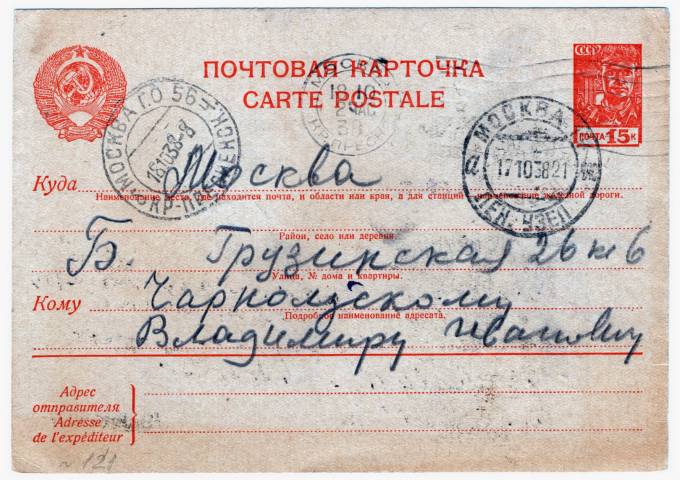 ПОЧТОВАЯ КАРТОЧКА
CARTE POSTALE
СССР
ПОЧТА 15 К
МОСКВА Г.О. 56
18 10 38
МОСКВА
17 10 38 21
Куда Москва
Наименование места, где находится почта, и области или края, а для станций наименование железной дороги.
Район, село или деревня.
Б. Грузинская 26 к 6
Улица, № дома и квартиры.
Кому Чарнолускому
Подробное наименование адресата.
Владимиру Ивановичу
Адрес
отправителя
Adresse
de l'expéditeur
121